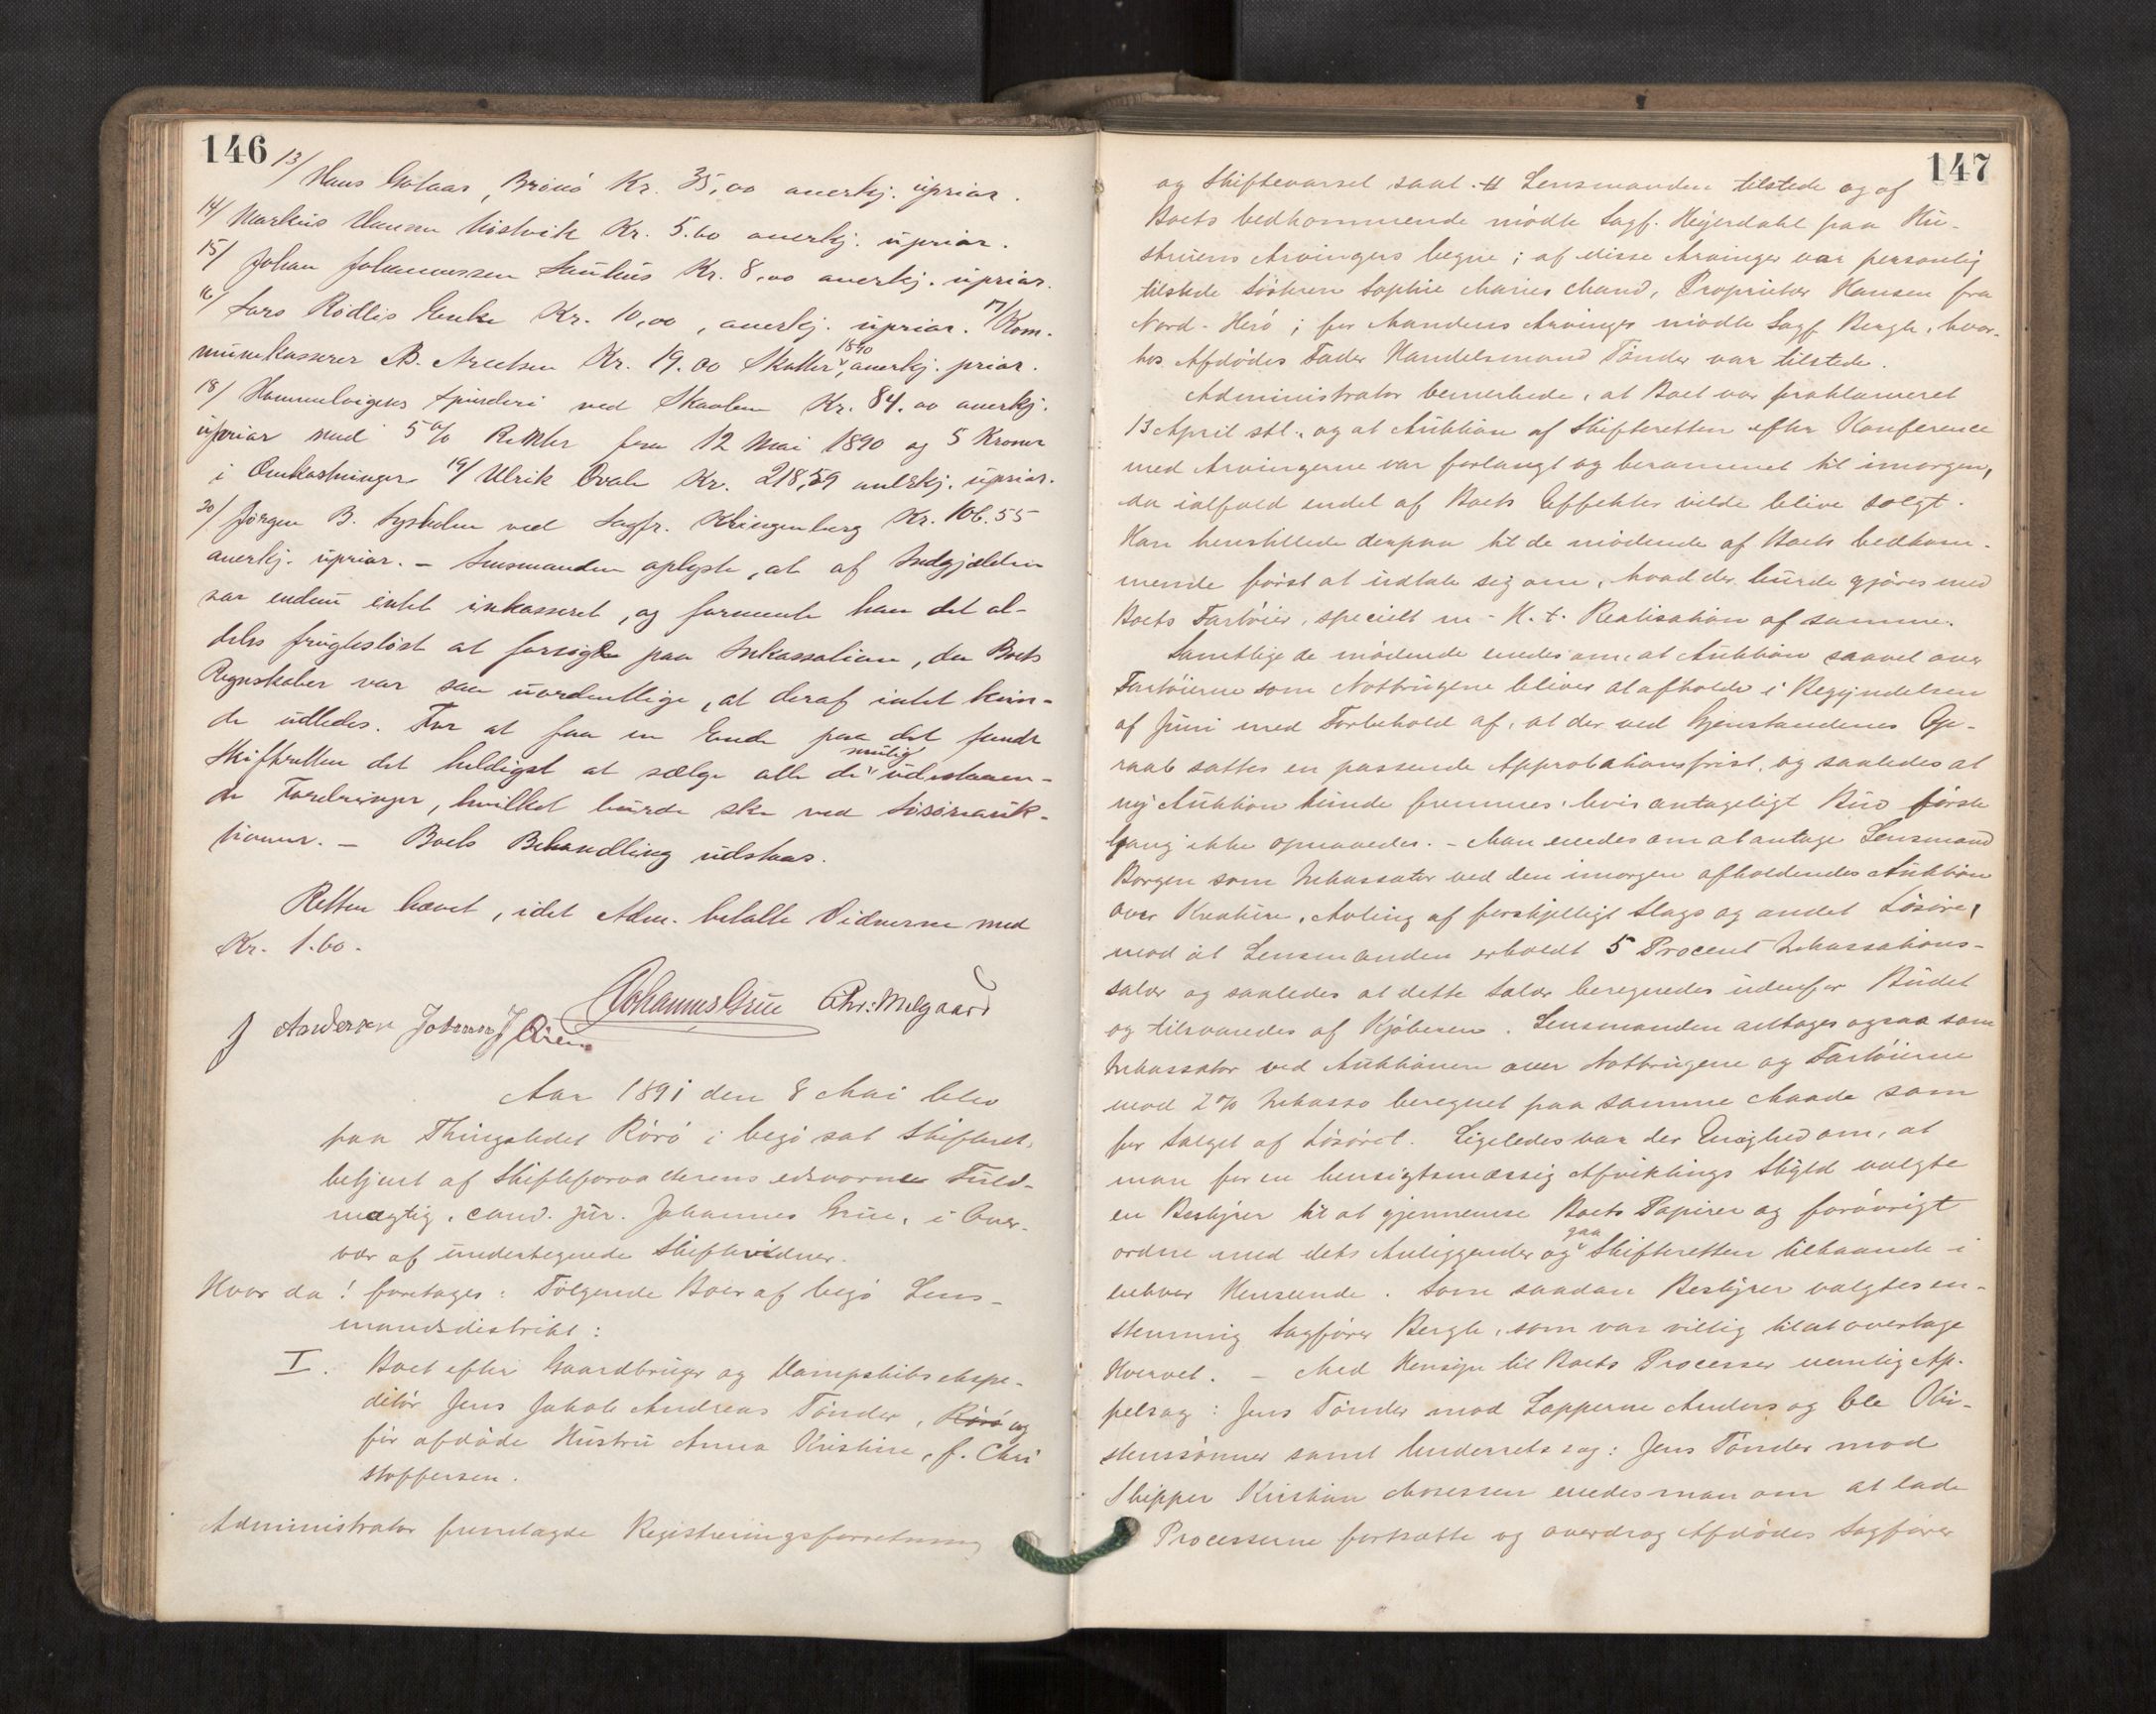 146
13/ Hans Golaas, Brönö Kr. 35,00 anerkj. üprior.
14/ Markus Hansen Kr. 5.60 anerkj. üprior.
15/ Johan Johannessen Kr. 8,00 anerkj. üprior.
16/ Lars Rödlis Enke Kr. 10,00, anerkj. üprior. 17/ Kom-
münekasserer Kr. 19.00 Skatter 1890, anerkj. prior.
18/ Hommelvigens Spinderi ved Skaolen Kr. 84.00 anerkj.
üprior med 5% Renter fra 12 Mai 1890 og 5 Kroner
i Omkostninger 19/ Ulrik Kr. 218,59 anerkj. üprior.
20/ Jörgen B. Lysholm ved Sagfr. Klingenberg Kr. 106.55
anerkj. üprior. – Lensmanden oplyste, at af Indgjælden
var endnü intet inkasseret, og formente han det al-
deles frugteslöst at forsöge paa Inkassation, da Boets
Regnskaber var saa üordentlige, at deraf intet kün-
de üdledes. For at faa en Ende paa det fandt
Skifteretten det heldigst at sælge alle de mulig üdestaaen-
de Fordringer, hvilket bürde ske ved Lösöreauk-
tionen. – Boets Behandling üdstaar.
Retten hævet, idet Adm. betalte Vidnerne med
Kr. 1.60.
Johannes Grüe Chr: Melgaard
J Andersen Johan J
Aar 1891 den 8 Mai blev
paa Thingstedet Rörö i Vegö sat Skifteret,
betjent af Skifteforvalterens edsvorne Fuld-
mægtig, cand. jür. Johannes Grüe, i Over-
vær af ündertegnede Skiftevidner.
Hvor da! foretages: Fölgende Boer af Vegö Lens-
mandsdistrikt:
I. Boet efter Gaardbruger og Dampskibsekspe-
ditör Jens Jakob Andreas Tönder, Rörö og
för afdöde Hüstrü Anna Kristine, f. Chri
stoffersen.
Administrator fremlagde Registreringsforretning
147
og Skiftevarsel samt. tt Lensmanden tilstede og af
Boets Vedkommende mödte Sagf. Heyerdahl paa Hü-
strüens Arvingers vegne; af disse Arvinger var personlig
tilstede Sösteren Sophie Maries Mand, Proprietær Hansen fra
Nord-Herö; for Mandens Arvinger mödte Sagf. Bergh, hvor-
hos Afdödes Fader Handelsmand Tönder var tilstede.
Administrator bemerkede, at Boet var proklameret
13 April stl., og at Auktion af Skifteretten efter Konference
med Arvingerne var forlangt og berammet til imorgen,
da ialfald endel af Boets Effekter vilde blive solgt.
Han henstillede derpaa til de mödende af Boets Vedkom-
mende först at üdtale sig om, hvad der bürde gjöres med
Boets Fartöier, specielt m. H. t. Realisation af samme.
Samtlige de mödende enedes om, at Auktion saavel over
Fartöierne som Notbrügene bliver at afholde i Begyndelsen
af Jüni med Forbehold af, at der ved Gjenstandenes Op-
raab sattes en passende Approbationsfrist, og saaledes at
ny Auktion künde fremmes, hvis antageligt Büd förste
Gang ikke opnaaedes. – Man enedes om at antage Lensmand
Borgen som Inkassator ved den imorgen afholdendes Auktion
over Kreature, Avling af forskjelligt Slags og andet Lösöre,
mod at Lensmanden erholdt 5 Procent Inkassations-
salær og saaledes at dette Salær beregnedes üdenfor Büdet
og tilsvaredes af Kjöberen. Lensmanden antages ogsaa som
Inkassator ved Auktionen over Notbrügene og Fartöierne
mod 2% Inkasso beregnet paa samme Maade som
for Salget af Lösöret. Ligeledes var der Enighed om, at
man for en hensigtsmæssig Afviklings Skyld valgte
en Bestyrer til at gjennemse Boets Papirer og forövrigt
ordne med dets Anliggender og gaa Skifteretten tilhaande i
enhver Henseende. Som saadan Bestyrer valgtes en-
stemmig Sagförer Bergh, som var villig til at overtage
Hvervet. – Med Hensyn til Boets Processer nemlig Ap-
pelsag: Jens Tönder mod Lapperne Anders og Ole Kri-
stenssönner samt Underretssag: Jens Tönder mod
Skipper Kristian Anessen enedes man om at lade
Processerne fortsætte og overdrog Afdödes Sagförer